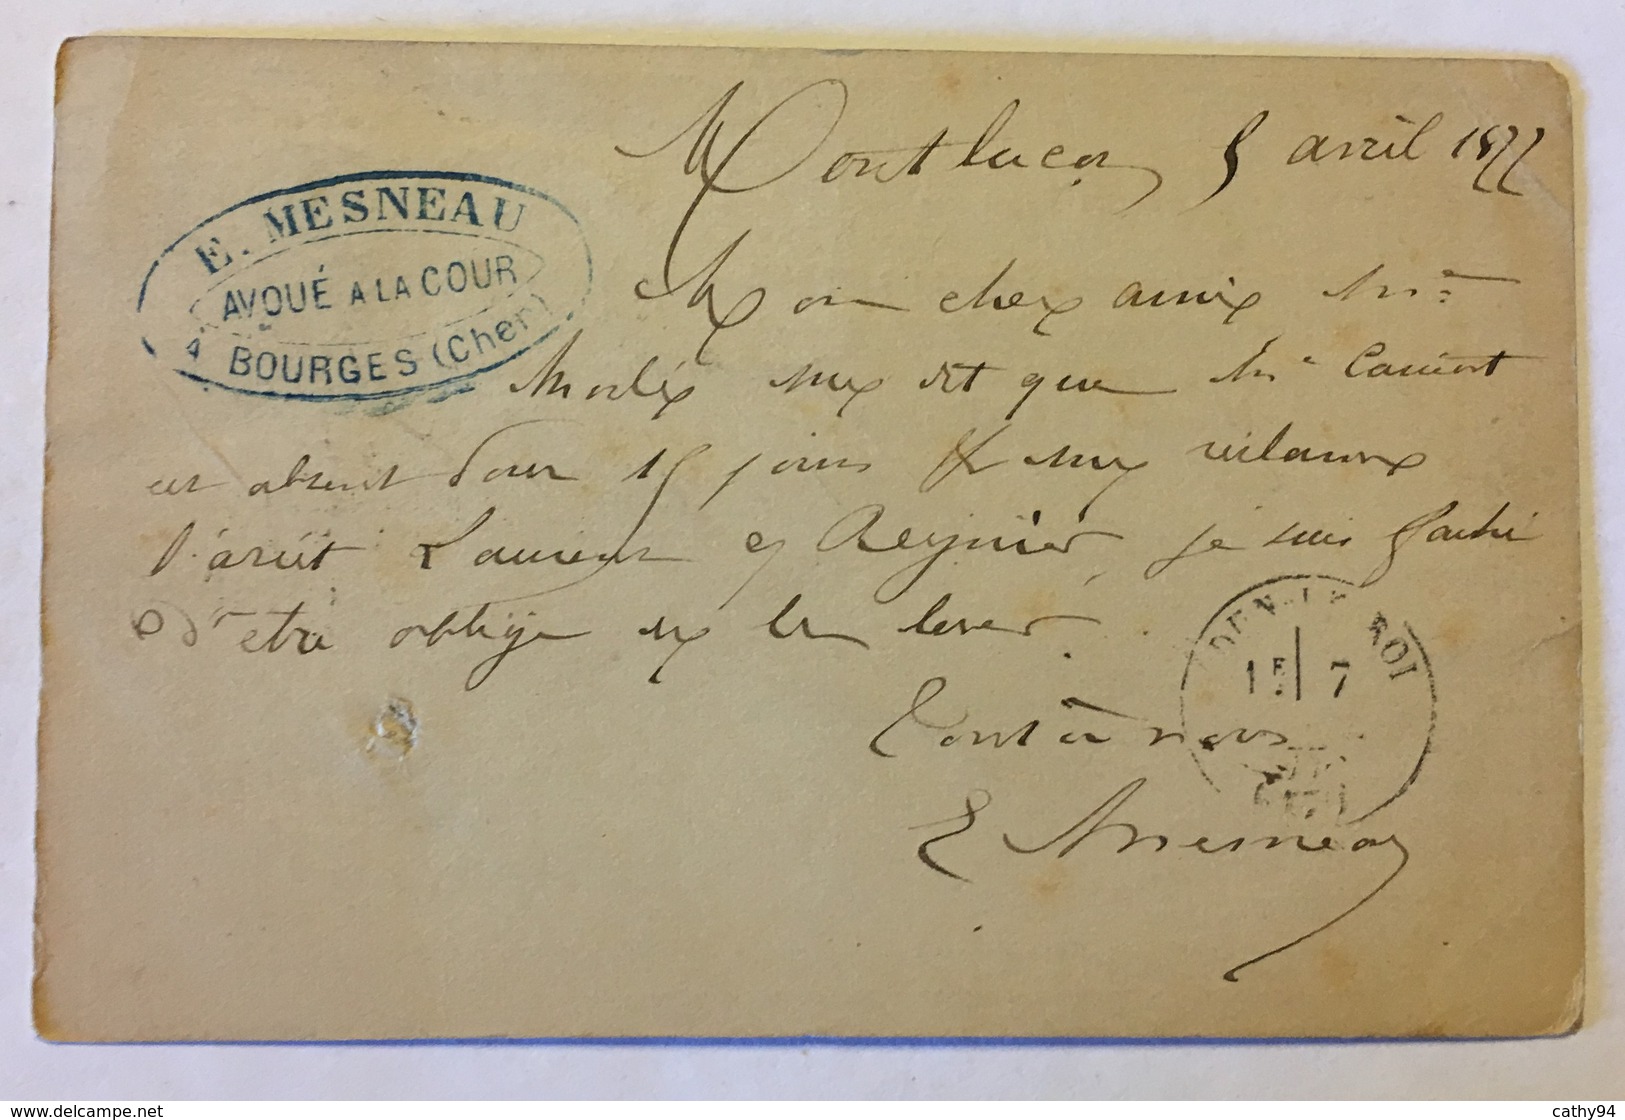 Montluçon 5 avril 1877
E. MESNEAU
AVOUÉ A LA COUR
A BOURGES (Cher)
Mon cher ami Me
me dit que Mr
est absent pour 15 jours &
l'arrêt Laurent et Reynier, je suis faché
d'être obligé de le lever.
Tout à vous
E Mesneau
DUN-LE-ROI
1E 7
cathy94